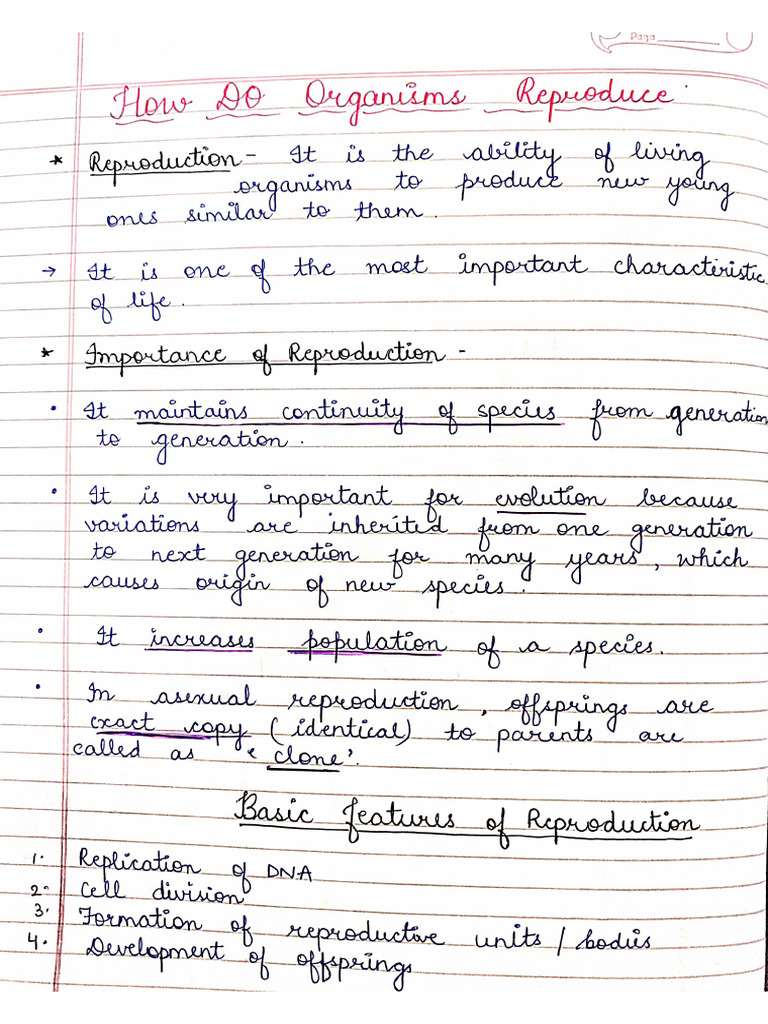 Page
How Do Organisms Reproduce
* Reproduction - It is the ability of living
organisms to produce new young
ones similar to them.
→ It is one of the most important characteristic
of life.
* Importance of Reproduction -
• It maintains continuity of species from generation
to generation.
• It is very important for evolution because
variations are inherited from one generation
to next generation for many years, which
causes origin of new species.
• It increases population of a species.
• In asexual reproduction, offsprings are
exact copy (identical) to parents are
called as ‘clone’.
Basic Features of Reproduction
1. Replication of DNA
2. Cell division
3. Formation of reproductive units/bodies
4. Development of offsprings